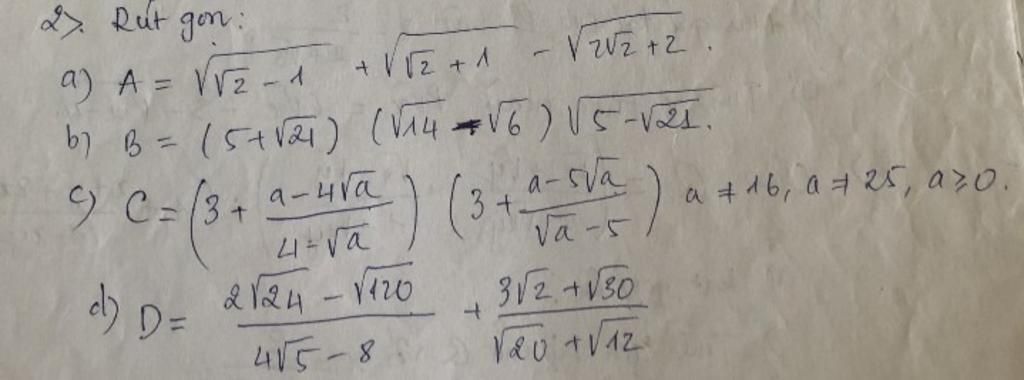 2>. Rút gọn:
a) A = √(√2 - 1) + √(√2 + 1) - √(2√2 + 2).
b) B = (5 + √21) (√14 - √6) √(5 - √21).
c) C = (3 + (a - 4√a)/(4 - √a)) (3 + (a - 5√a)/(√a - 5)) a ≠ 16, a ≠ 25, a ≥ 0.
d) D = (2√24 - √120)/(4√5 - 8) + (3√2 + √30)/(√20 + √12)